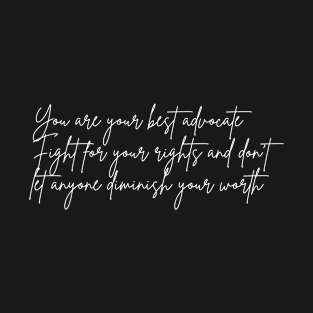 You are your best advocate
Fight for your rights and don't
let anyone diminish your worth